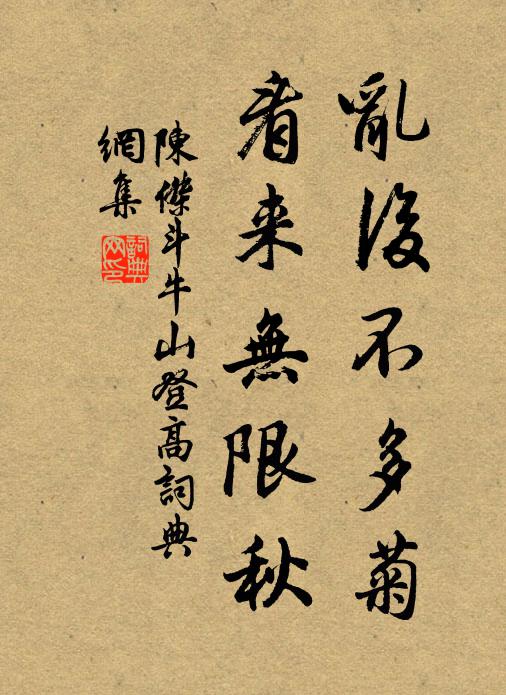 亂後不多菊
看來無限秋
陳傑斗牛山登高詞典
網集
詞典
网印